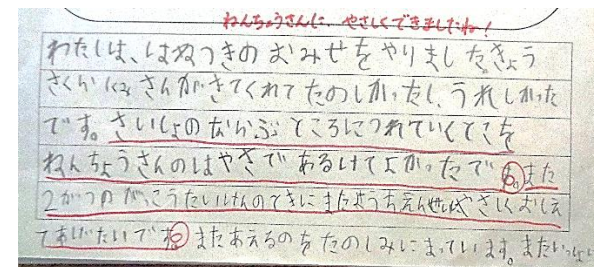 ねんちょうさんに、やさしくできましたね！
わたしは、はねつきのおみせをやりました。きょう
さくらぐみさんがきてくれてたのしかったし、うれしかった
です。さいしょのならぶところにつれていくとこを
ねんちょうさんのはやさであるけてよかったです。また
2がつのがっこうたいけんのてきにまたようちえんせいにやさしくおしえ
てあげたいです。またあえるのをたのしみにまっています。またいっしょに